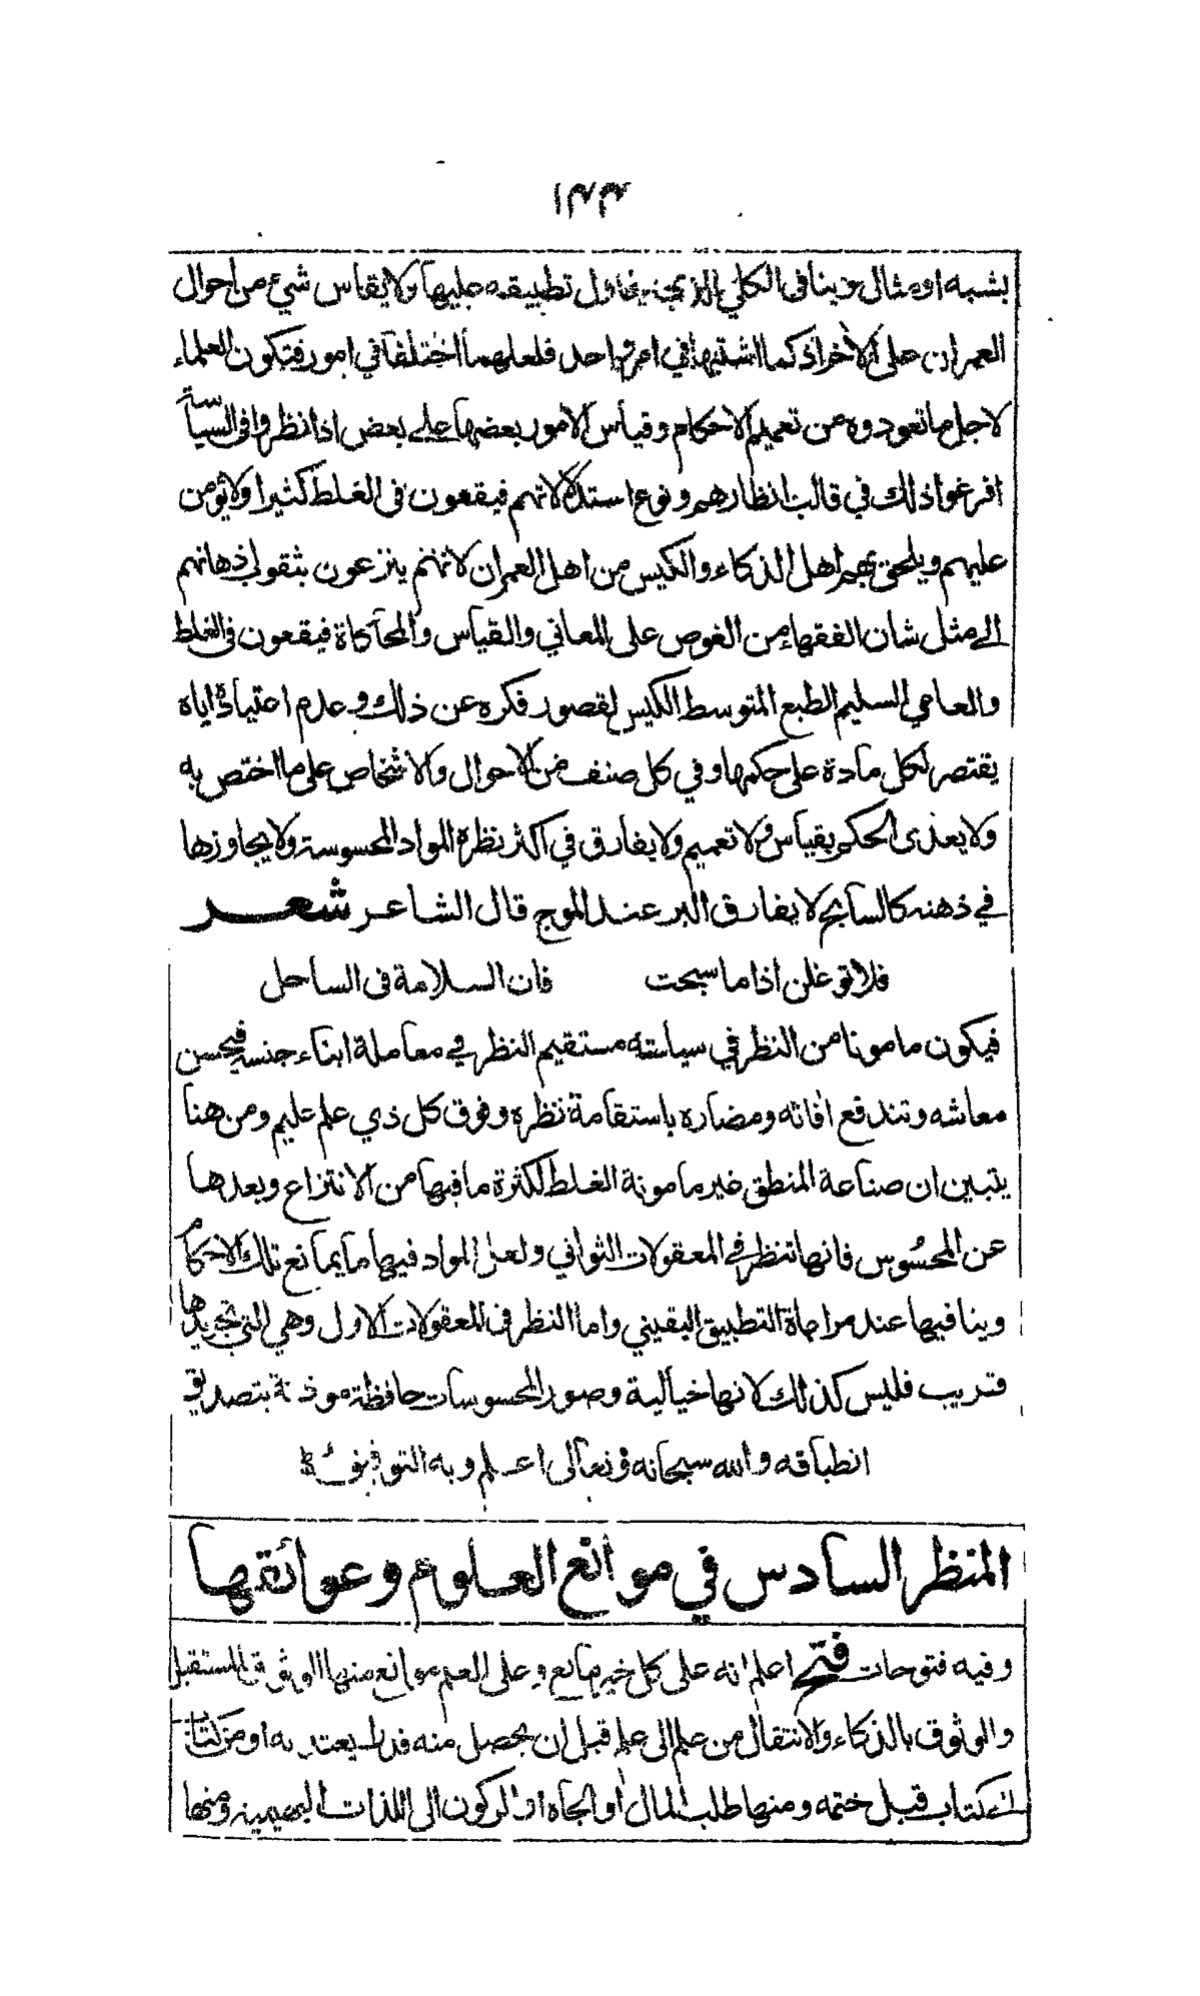 ١٢٣
بشبه او مثال وينافى الكلي الذي يحاول تطبيقه عليها ولا يقاس شيء من احوال
العمران على الآخر اذ كما اشتبها في امر واحد فلعلهما اختلفا في امور فتكون العلماء
لاجل ما تعودوه من تعميم الاحكام وقياس الامور بعضها على بعض اذا نظروا فى السياسة
افرغوا ذلك في قالب انظارهم ونوع استدلالاتهم فيقعون فى الغلط كثيرا ولا يؤمن
عليهم ويلحق بهم اهل الذكاء والكيس من اهل العمران لانهم ينزعون بثقوب اذهانهم
الى مثل شان الفقهاء من الغوص على المعاني والقياس والمحاكاة فيقعون فى الغلط
والعامي السليم الطبع المتوسط الكيس لقصور فكره عن ذلك وعدم اعتياده اياه
يقتصر لكل مادة على حكمها وفي كل صنف من الاحوال والاشخاص على ما اختص به
ولا يعدى الحكم بقياس ولا تعميم ولا يفارق في اكثر نظره المواد المحسوسة ولا يجاوزها
في ذهنه كالسابح لا يفارق البر عند الموج قال الشاعر شعر
فلا توغلن اذا ما سبحت فان السلامة فى الساحل
فيكون مامونا من النظر في سياسته مستقيم النظر في معاملة ابناء جنسه فيحسن
معاشه وتندفع افاته ومضاره باستقامة نظره وفوق كل ذي علم عليم ومن هنا
يتبين ان صناعة المنطق غير مامونة الغلط لكثرة ما فيها من الانتزاع وبعدها
عن المحسُوس فانها تنظر في المعقولات الثواني ولعل المواد فيها ما يمانع تلك الاحكام
وينافيها عند مراعاة التطبيق اليقيني واما النظر فى المعقولات الاول وهي التي تجريدها
قريب فليس كذلك لانها خيالية وصور المحسوسات حافظة موذنة بتصديق
انطباقه والله سبحانه وتعالى اعلم وبه التوفيق
المنظر السادس في موانع العلوم وعوائقها
وفيه فتوحات فتح اعلم انه على كل خير مانع وعلى العلم موانع منها الوثوق بالمستقبل
والوثوق بالذكاء والانتقال من علم الى علم قبل ان يحصل منه قدر يعتد به او من كتاب
الى كتاب قبل ختمه ومنها طلب المال او الجاه او الركون الى اللذات البهيمية ومنها